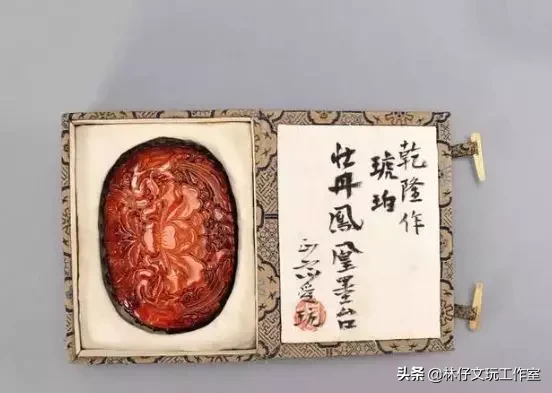 乾隆作
琥珀
牡丹鳳凰墨台
愛玩
头条 @林仔文玩工作室